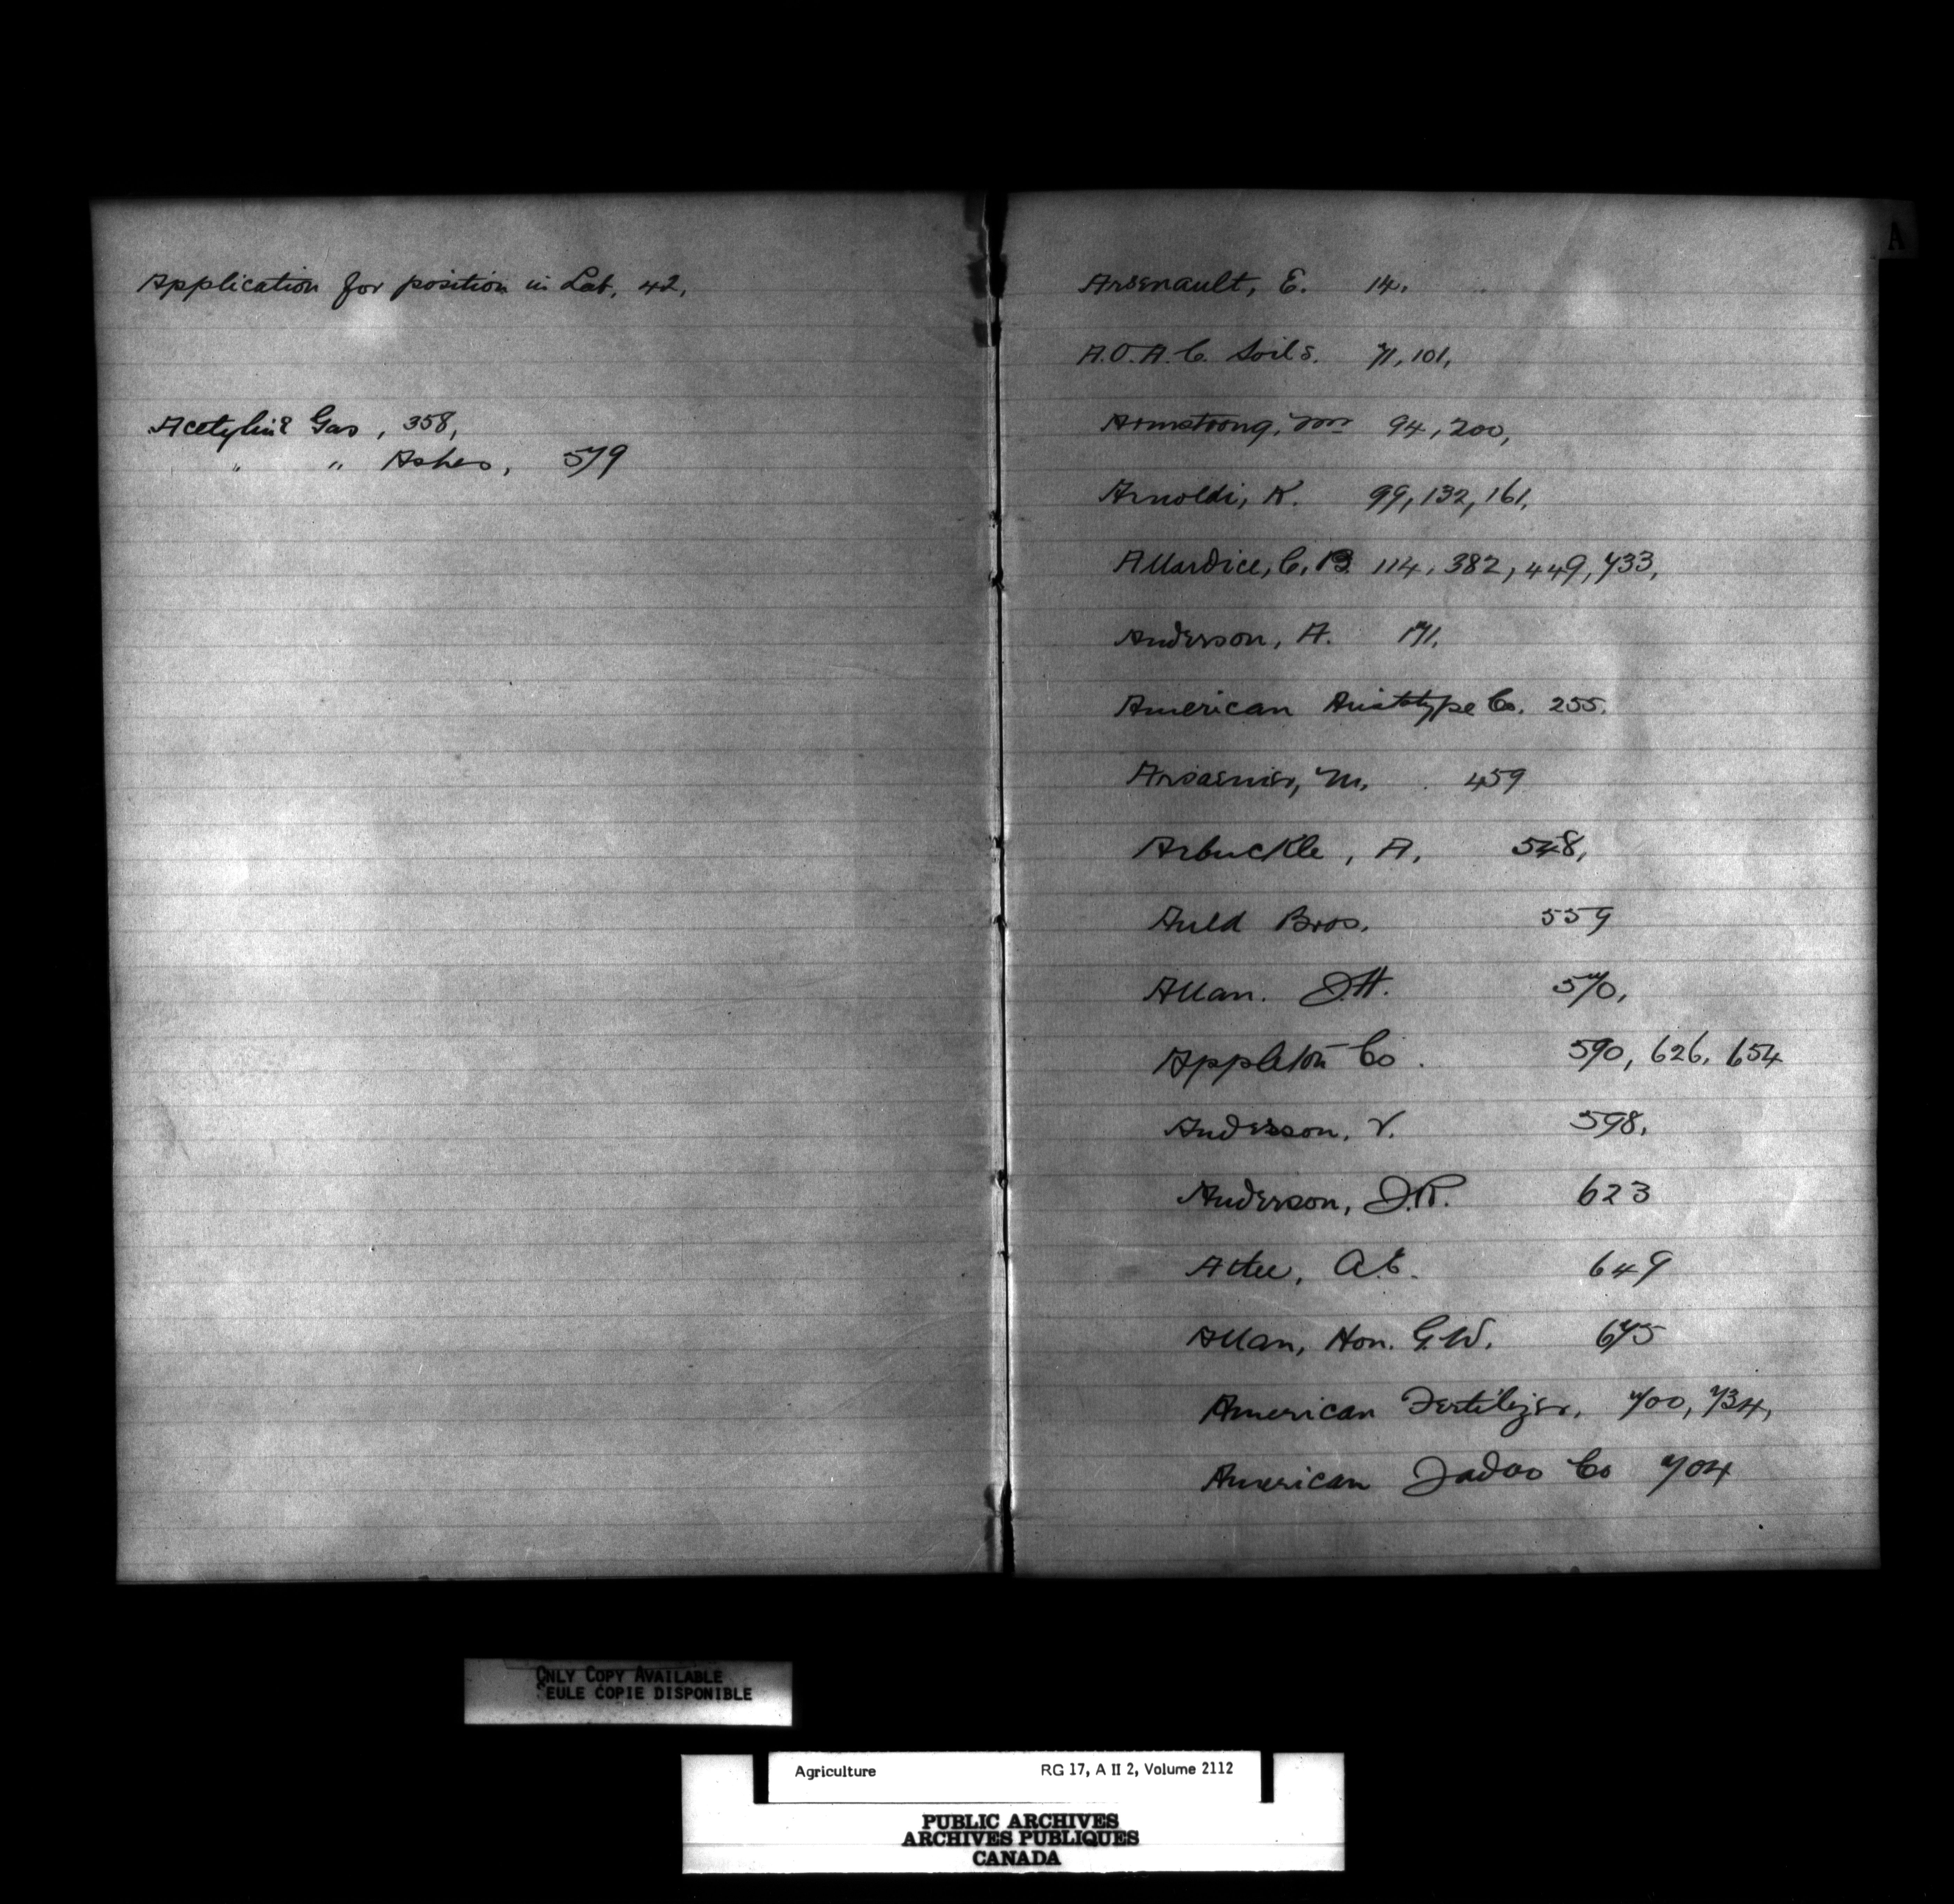 Application for position in Lab, 42,
Acetyline Gas, 358,
" " Ashes, 579
A
Arsenault, E. 14.
A.O.A.C. Soils. 71, 101,
Armstrong, Wm 94, 200,
Arnoldi, K. 99, 132, 161,
Allardice, C. B. 114, 382, 449, 733,
Anderson, A. 171.
American Aristotype Co. 255.
M. 459
Arbuckle, A, 548,
Auld Bros. 559
Allan. J.H. 570,
Appleton Co. 590, 626, 654
Andersson, V. 598,
Anderson, J.R. 623
649
Allan, Hon. G.W. 675
American Fertilizer, 700, 734,
American Jadoo Co 704
ONLY COPY AVAILABLE
SEULE COPIE DISPONIBLE
Agriculture RG 17, A II 2, Volume 2112
PUBLIC ARCHIVES
ARCHIVES PUBLIQUES
CANADA